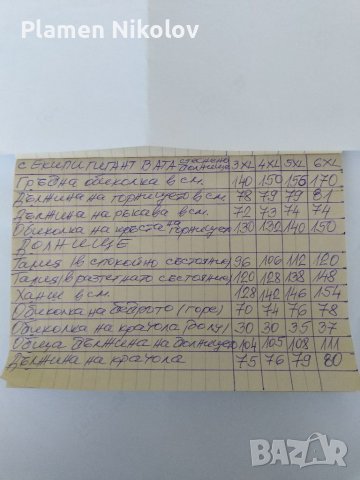 Plamen Nikolov
С ЕКИП ГИГАНТ ВАТА 3XL 4XL 5XL 6XL
Гръдна обиколка в см. 140 150 156 170
Дължина на горнището в см 78 79 79 81
Дължина на ръкава в см. 72 73 74 74
Обиколка на кръста на горнището 130 132 140 150
ДОЛНИЩЕ
Талия (в спокойно състояние) 96 106 112 120
Талия (в разтегнато състояние) 120 128 138 148
Ханш в см. 128 142 146 154
Обиколка на бедрото (горе) 70 74 76 78
Обиколка на крачола (долу) 30 30 35 37
Обща дължина на долнището 104 105 108 111
Дължина на крачола 75 76 79 80
BAZAR
bg